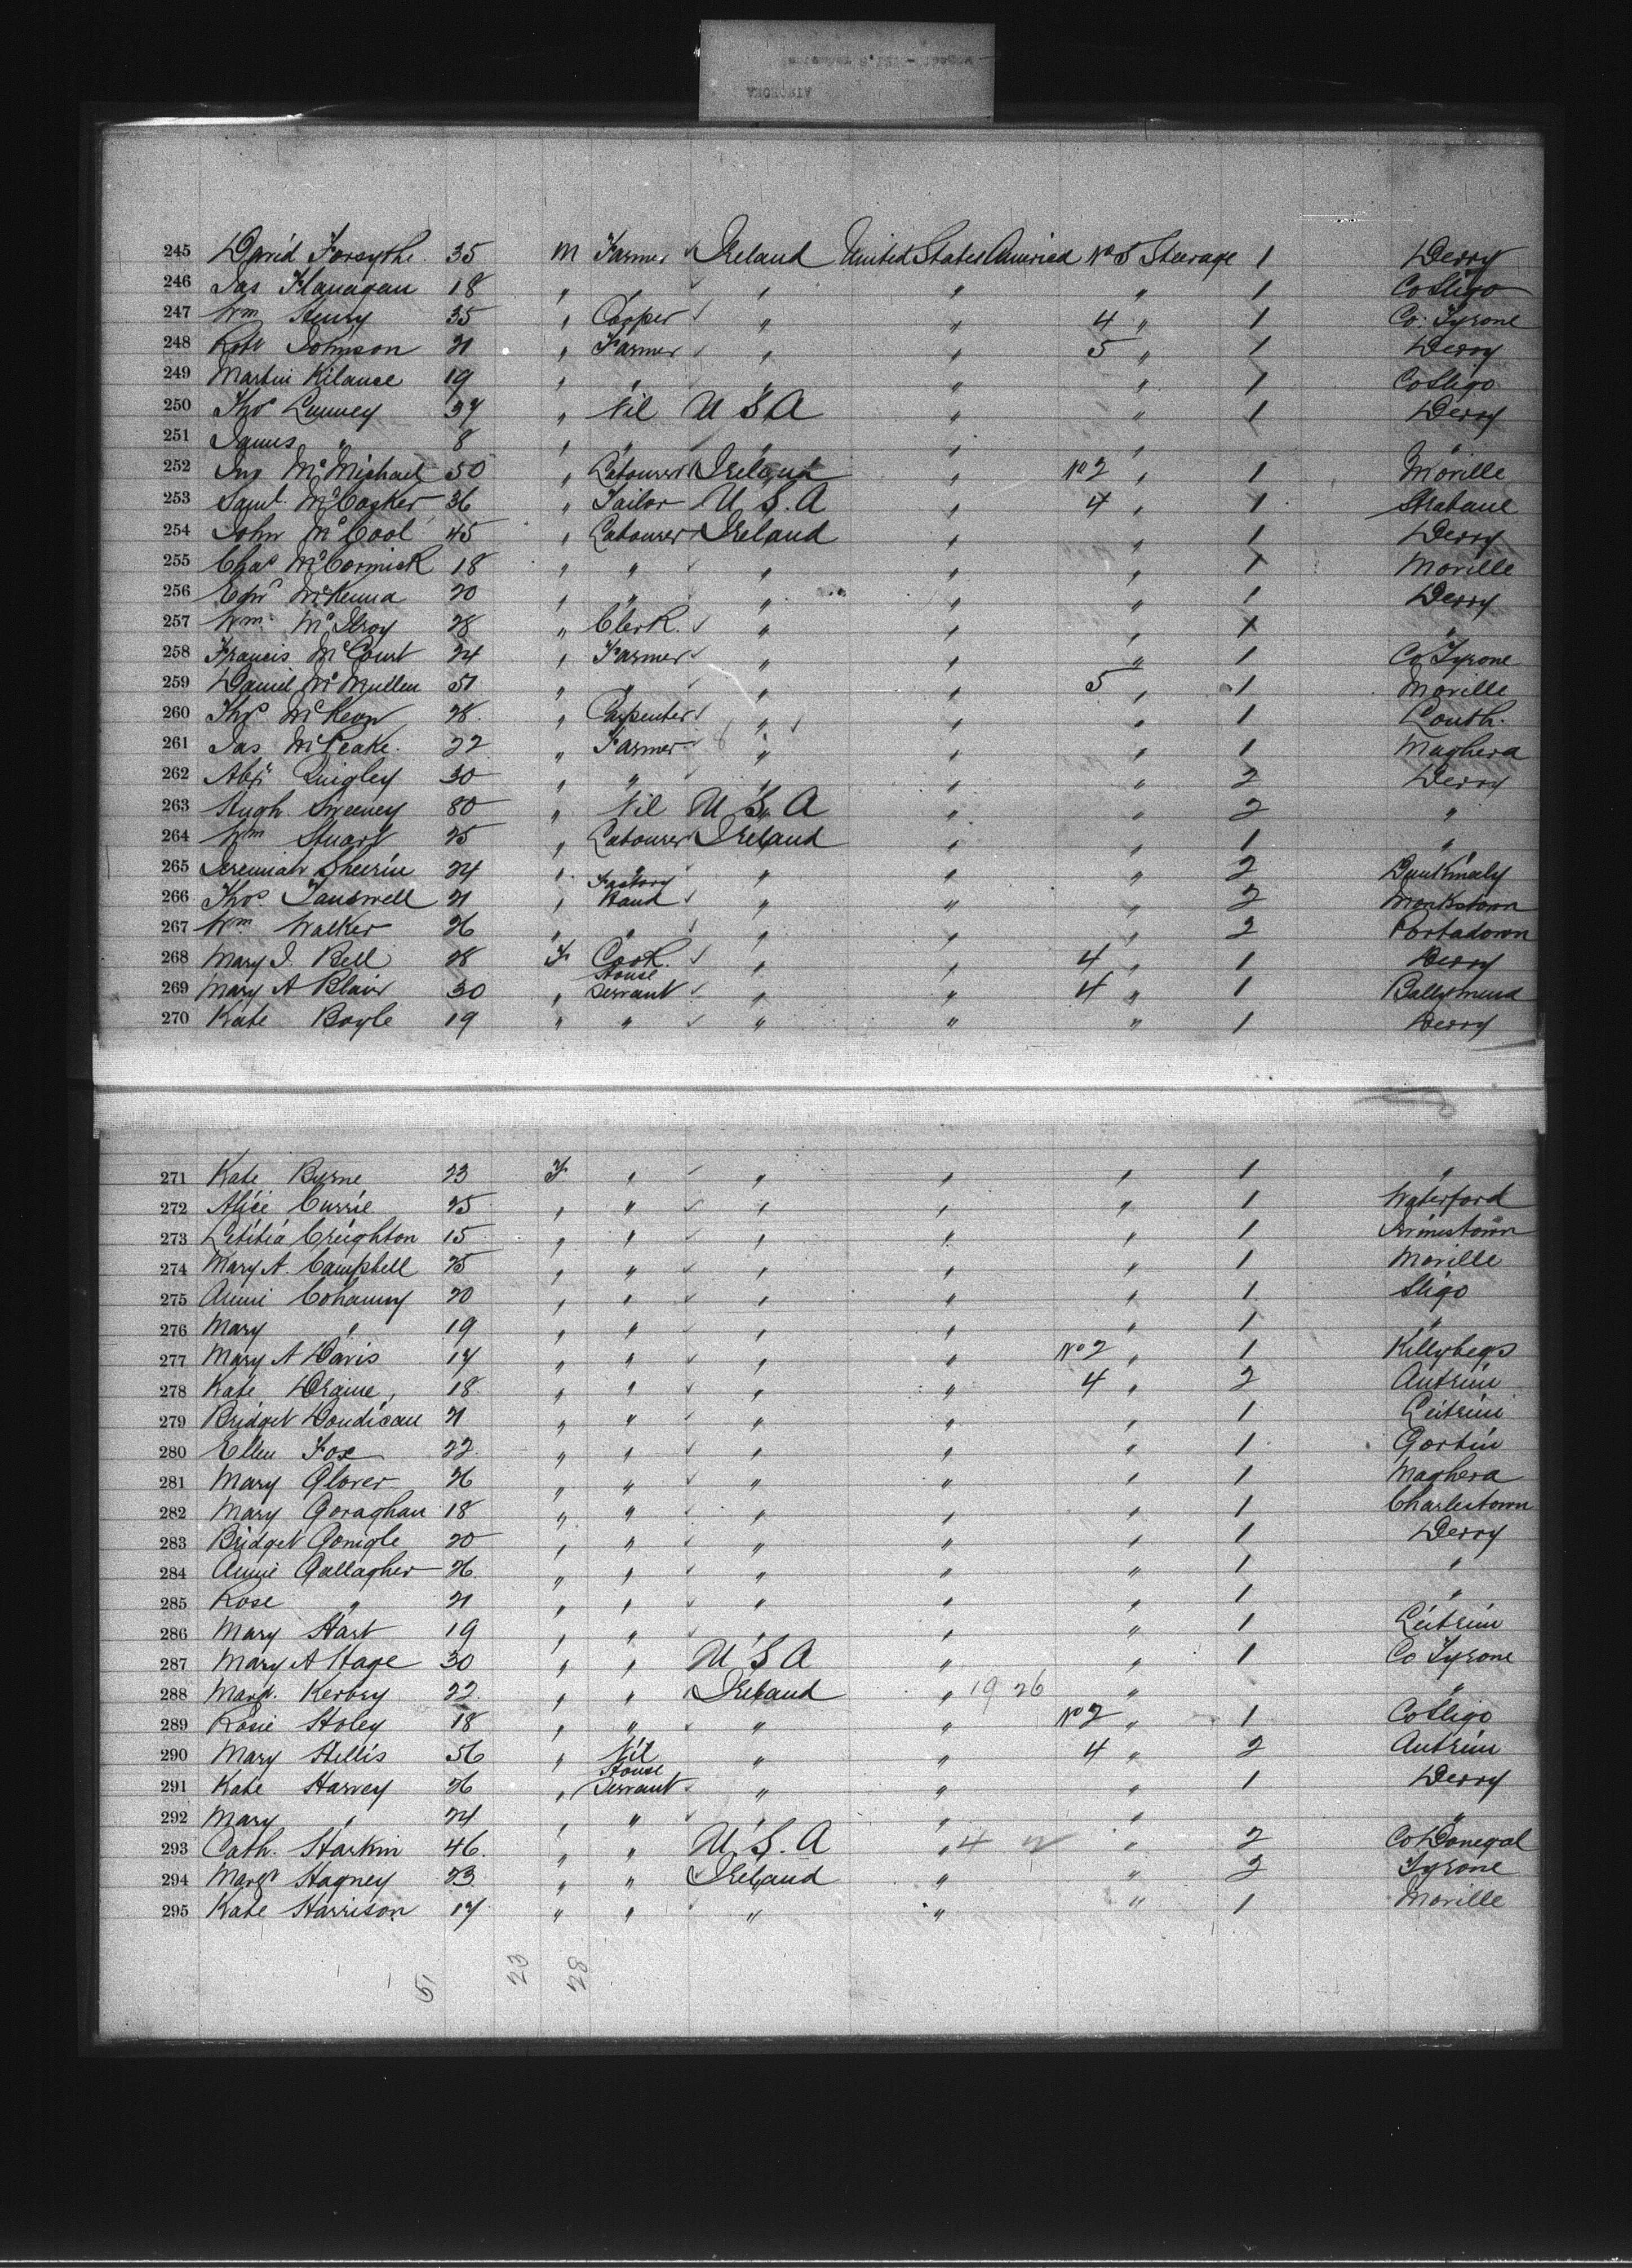 245 David Forsythe 35 M Farmer Ireland United States America No 5 Steerage 1 Derry
246 Jas Flanagan 18 " " " " " 1 Co Sligo
247 Wm Henry 35 " Cooper " " 4 " 1 Co. Tyrone
248 Robt Johnson 21 " Farmer " " 5 " 1 Derry
249 Martin Kilance 19 " " " " " 1 Co Sligo
250 Thos Lunney 37 " Nil U S A " " 1 Derry
251 James " 8 " " " " " 1 "
252 Jno McMichael 50 " Labourer Ireland " No 2 " 1 Moville
253 Saml McCosker 36 " Tailor U S. A " 4 " 1 Strabane
254 John McCool 45 " Labourer Ireland " " 1 Derry
255 Chas McCormick 18 " " " " " 1 Moville
256 Edwd McKenna 20 " " " " " 1 Derry
257 Wm McIlroy 28 " Clerk. " " " 1 "
258 Francis McCourt 24 " Farmer " " " 1 Co Tyrone
259 Daniel McMullen 51 " " " " 5 " 1 Moville
260 Thos McKeon 28. " Carpenter " " " 1 Louth.
261 Jas McPeake. 22 " Farmer " " " 1 Maghera
262 Alexr Quigley 30 " " " " " 2 Derry
263 Hugh Sweeney 80 " Nil U S A " " 2 "
264 Wm Stuart 25 " Labourer Ireland " " 1 "
265 Jeremiah Sheerin 24 " " " " " 2 Dunkineely
266 Thos Tanswell 21 " Factory Hand " " " 2 Monkstown
267 Wm Walker 26 " " " " " 2 Portadown
268 Mary J. Bell 28 F Cook. " " 4 " 1 Derry
269 Mary A Blair 30 " House Servant " " 4 " 1 Ballymena
270 Kate Boyle 19 " " " " " 1 Derry
271 Kate Byrne 23 F " " " " 1 "
272 Alice Currie 25 " " " " " 1 Waterford
273 Letitia Creighton 15 " " " " " 1 Irvinestown
274 Mary A. Campbell 25 " " " " " 1 Moville
275 Annie Cohanny 20 " " " " " 1 Sligo
276 Mary " 19 " " " " " 1 "
277 Mary A Davis 17 " " " " No 2 " 1 Killybegs
278 Kate Draine, 18. " " " " 4 " 2 Antrim
279 Bridget Dondican 21 " " " " " 1 Leitrim
280 Ellen Fox 22. " " " " " 1 Gortin
281 Mary Glover 26 " " " " " 1 Maghera
282 Mary Goraghan 18 " " " " " 1 Charlestown
283 Bridget Gonigle 20 " " " " " 1 Derry
284 Annie Gallagher 26. " " " " " 1 "
285 Rose " 21 " " " " " 1 "
286 Mary Hart 19 " " " " " 1 Leitrim
287 Mary A Hage 30 " " U S A " " 1 Co Tyrone
288 Margt. Kerbey 22. " " Ireland " 19 26 " "
289 Rosie Holey 18 " " " " No 2 " 1 Co Sligo
290 Mary Hillis 56 " Nil " " 4 " 2 Antrim
291 Kate Harvey 26 " House Servant " " " 1 Derry
292 Mary " 24 " " " " " "
293 Cath. Harkin 46. " " U S. A " 4 " 2 Co Donegal
294 Margt Hagney 23 " " Ireland " " 2 Tyrone
295 Kate Harrison 17 " " " " " 1 Moville
51 23 28